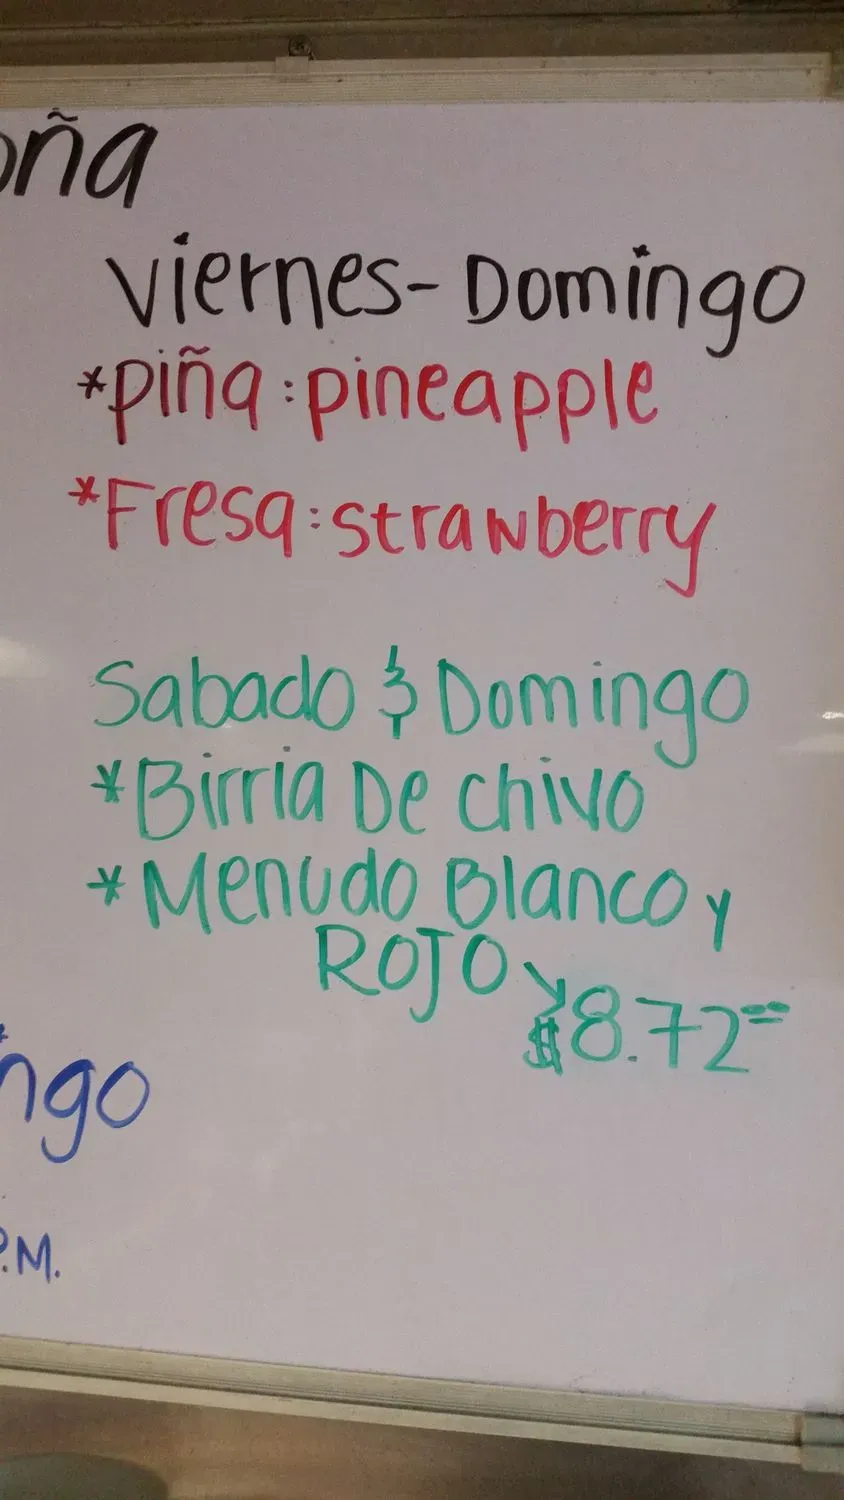 oña
Viernes-Domingo
*Piña:pineapple
*Fresa:strawberry
Sabado & Domingo
*Birria De Chivo
*Menudo Blanco y
ROJO
$8.72
ngo
P.M.